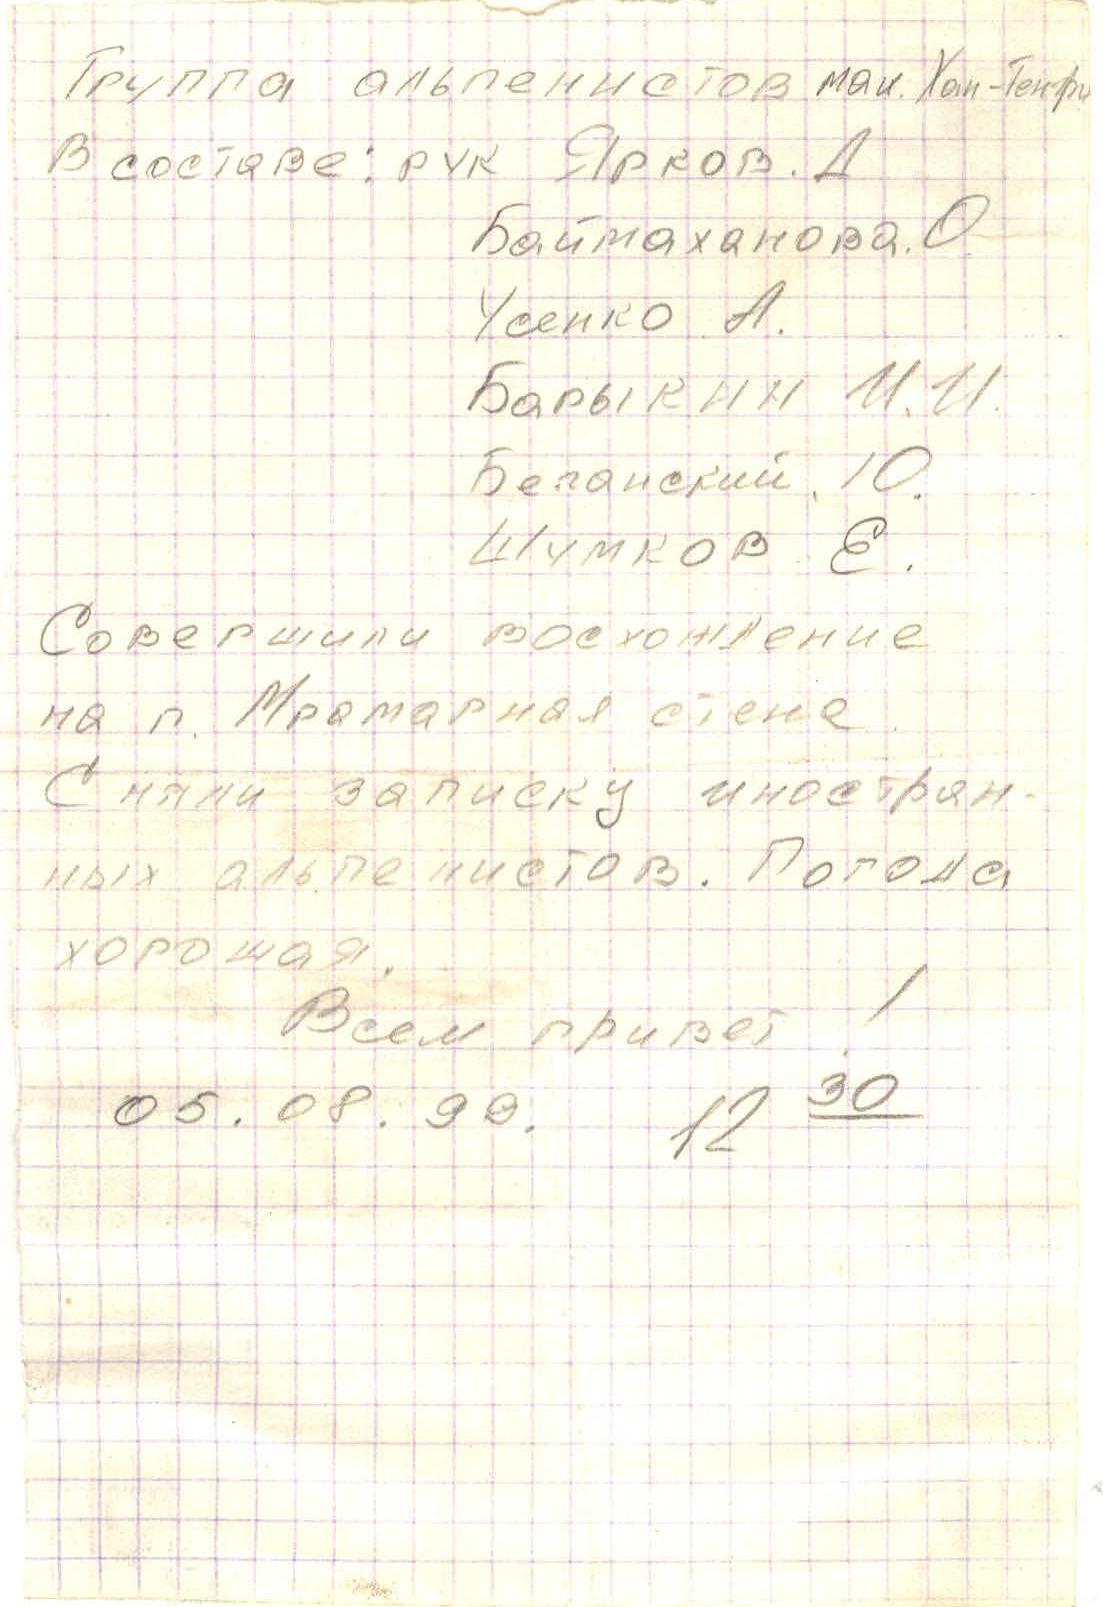 Группа альпенистов мал. Хан-Тенгри
В составе: рук Ярков. Д
Баймаханова. О
Усенко А.
Барыкин И.И.
Беганский. Ю.
Шумков Е.
Совершили восхождение
на п. Мрамарная стена.
Сняли записку иностран-
ных альпенистов. Погода
хорошая.
Всем привет!
05.08.99. 12 30